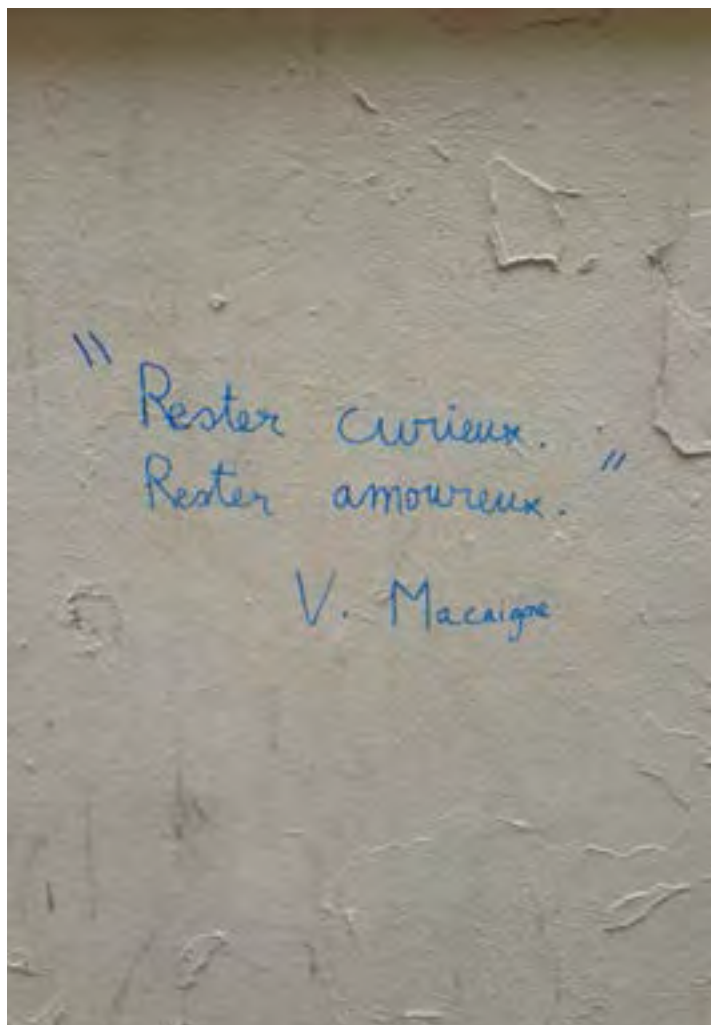 " Rester curieux.
Rester amoureux. "
V. Macaigne